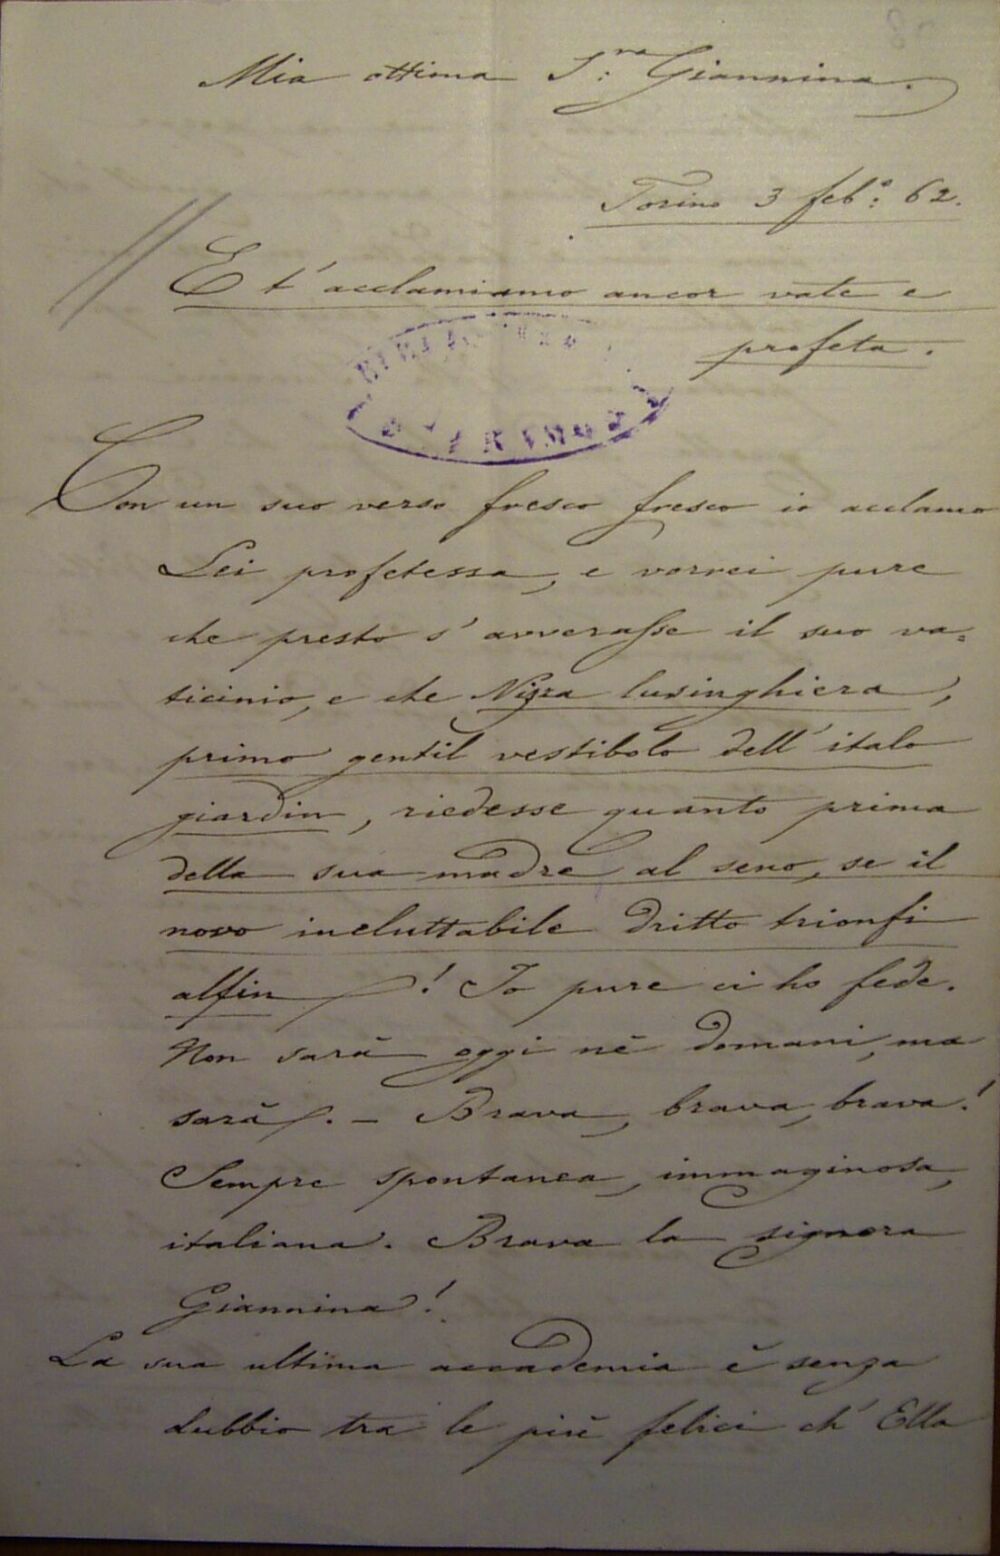 Mia ottima S.ra Giannina.
Torino 3 feb.o: 62.
E t'acclamiamo ancor vate e
profeta.
Con un suo verso fresco fresco io acclamo
Lei profetessa, e vorrei pure
che presto s'avverasse il suo va=
ticinio, e che Nizza lusinghiera,
primo gentil vestibolo dell'italo
giardin, riedesse quanto prima
della sua madre al seno, se il
novo ineluttabile dritto trionfi
alfin! Io pure ci ho fede.
Non sarà oggi nè domani, ma
sarà. — Brava, brava, brava!
Sempre spontanea, immaginosa,
italiana. Brava la signora
Giannina!
La sua ultima accademia è senza
dubbio tra le più felici ch'Ella